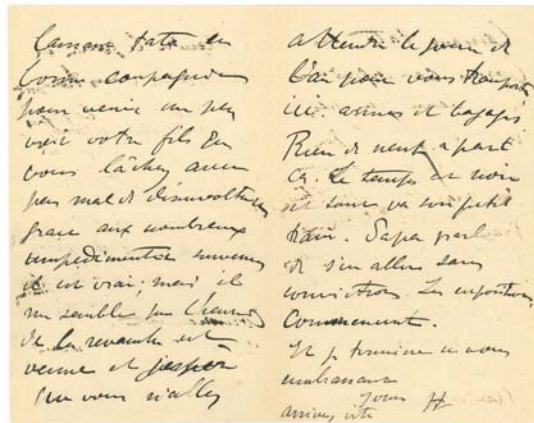 laissant tata en
bonne compagnie
pour venir un peu
voir votre fils que
vous lâchez avec
pas mal de désinvolture
grace aux nombreux
impedimenta survenus
il est vrai; mais il
me semble que l'heure
de la revanche est
venue et j'espère
que vous n'allez
attendre le jour de
l'an pour vous transporter
ici armes et bagages
Rien de neuf à part
ça. Le temps est noir
et  va son petit
train. Papa parle
de s'en aller sans
conviction. Les expositions
Commencent.
Et je termine en vous
embrassant
yours H
arrivez vite